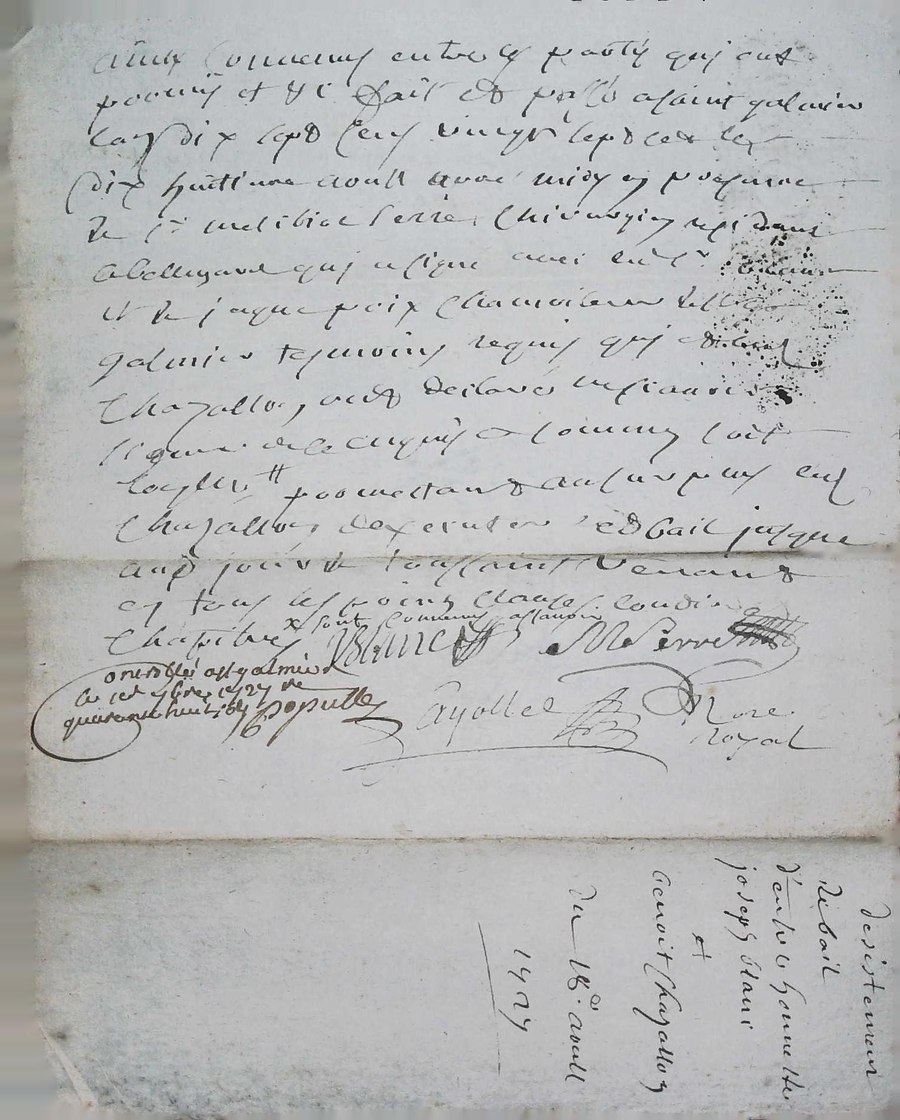 ainsy convenus entre les partyes quj ont
promis et &c fait et passé a saint galmier
lan dix sept cens vingt sept et le
dix huitieme aoust avant midy en presence
de sr Serre chirurgien residant
a bellegarde quj a signé avec led sr blanc
et de jaque poix chamoiseur dud st
galmier tesmoins requis quj et led
Chazallon ont declaré ne scavoir
signer de ce enquis et sommés soit
promettant au surplus led
Chazallon dexecuter led bail jusque
aux jour de toussaint venant
en tous les points clauses condi
Chapitres x sont convenus
Blanc MSerre
ontrollé a st galmier
le 1er 7bre 1727 Re
quarante huit sols Populle
Cayollet Nore
Royal
desistement
de bail
d'entre honnette
joseph blanc
et
benoit Chazallon
du 18e aoust
1727